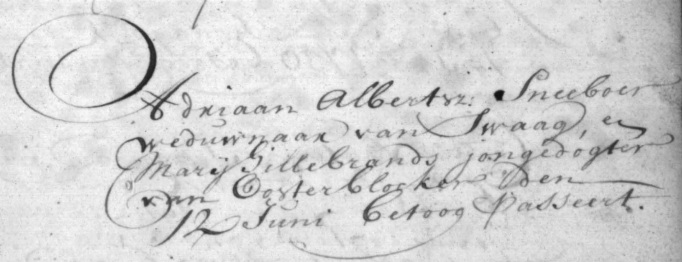 Adriaan Albertsz: Sneeboer
weduwnaar van Swaag, en
Marij Hillebrands jongedogter
van Oosterblocker den
12 Juni betoog Passeert.